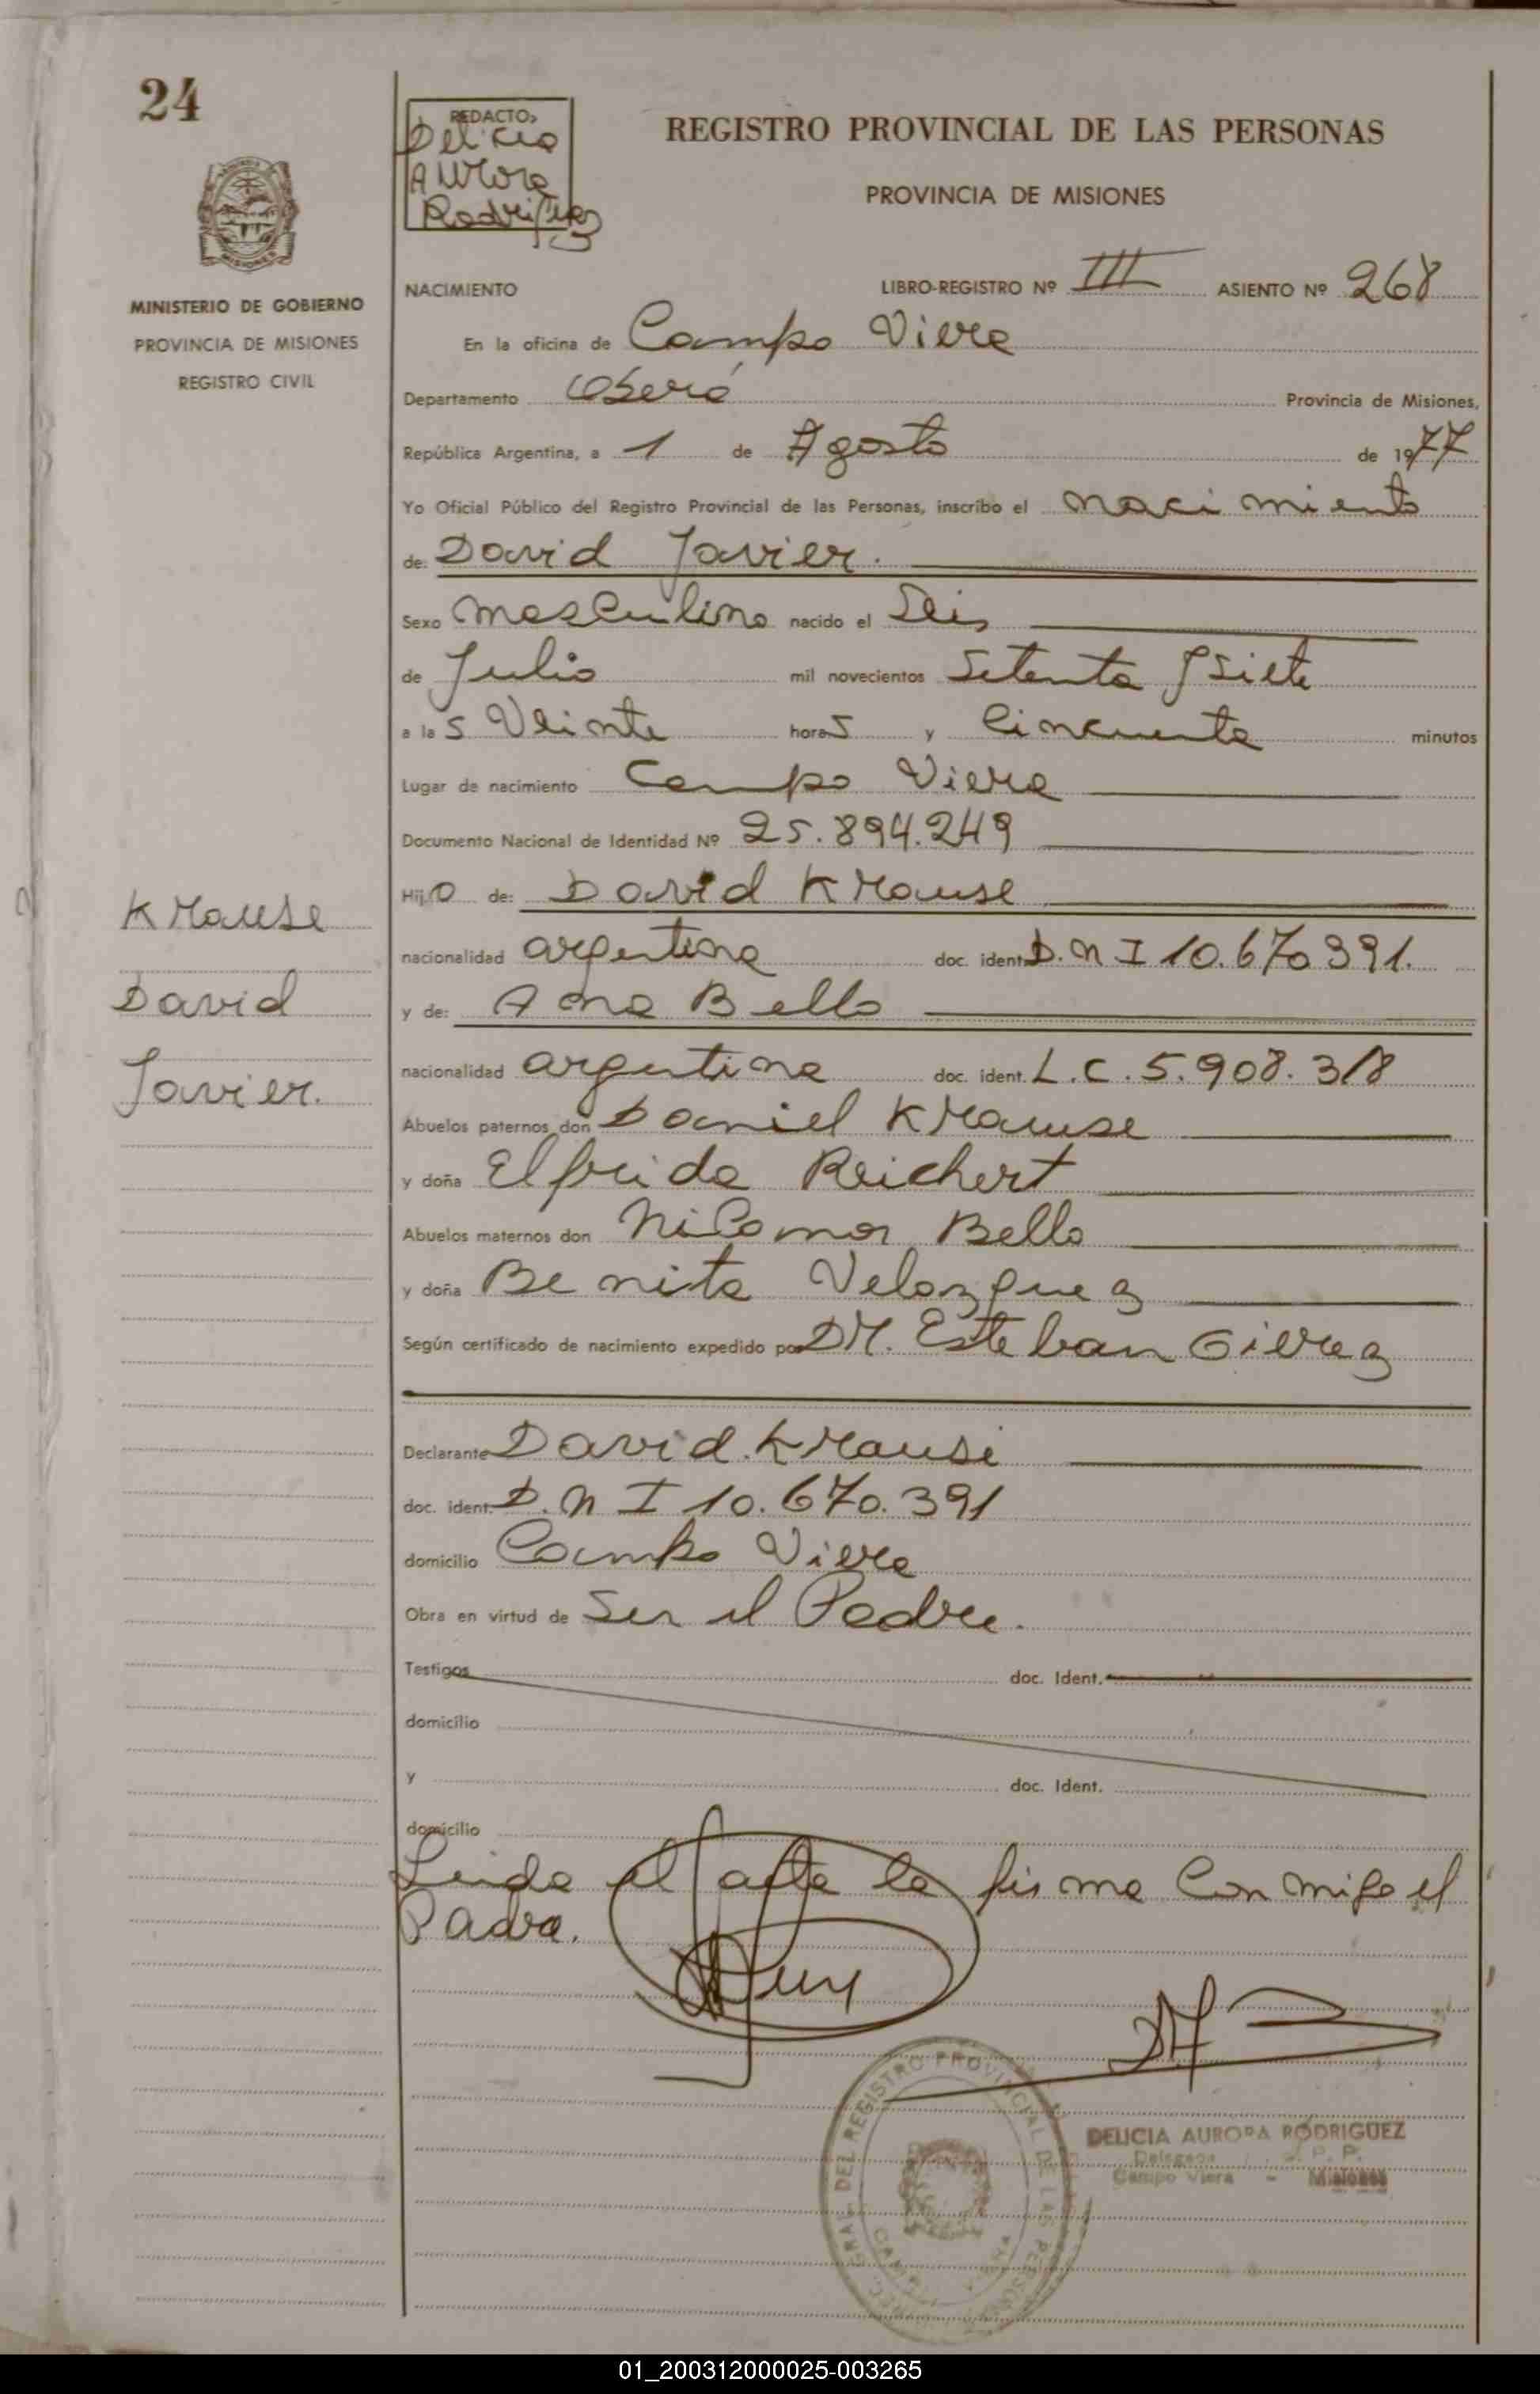 24
REDACTO:
Delicia
Aurora
Rodriguez
REGISTRO PROVINCIAL DE LAS PERSONAS
PROVINCIA DE MISIONES
MINISTERIO DE GOBIERNO
PROVINCIA DE MISIONES
REGISTRO CIVIL
NACIMIENTO LIBRO-REGISTRO Nº III ASIENTO Nº 268
En la oficina de Campo Viera
Departamento Oberá Provincia de Misiones,
República Argentina, a 1 de Agosto de 1977
Yo Oficial Público del Registro Provincial de las Personas, inscribo el nacimiento
de: David Javier.
Sexo masculino nacido el Seis
de Julio mil novecientos Setenta y Siete
a las Veinte horas y Cincuenta minutos
Lugar de nacimiento Campo Viera
Documento Nacional de Identidad Nº 25.894.249
Hijo de: David Krause
nacionalidad argentina doc. ident. D.N I 10.670391.
y de: Ana Bello
nacionalidad argentina doc. ident. L.C. 5.908.318
Abuelos paternos don Daniel Krause
y doña Elfrida Reichert
Abuelos maternos don Nicomor Bello
y doña Benita Velozquez
Según certificado de nacimiento expedido por DR. Esteban
Krause
David
Javier.
Declarante David Krause
doc. ident. D.N I 10.670.391
domicilio Campo Viera
Obra en virtud de Ser el Padre.
Testigos doc. Ident.
domicilio
y doc. Ident.
domicilio
Leida el acta la firma Conmigo el
Padre.
DELICIA AURORA RODRIGUEZ
Delegada R. P. P.
Campo Viera - Misiones
DEL REGISTRO PROVINCIAL DE LAS PERSONAS
01_200312000025-003265